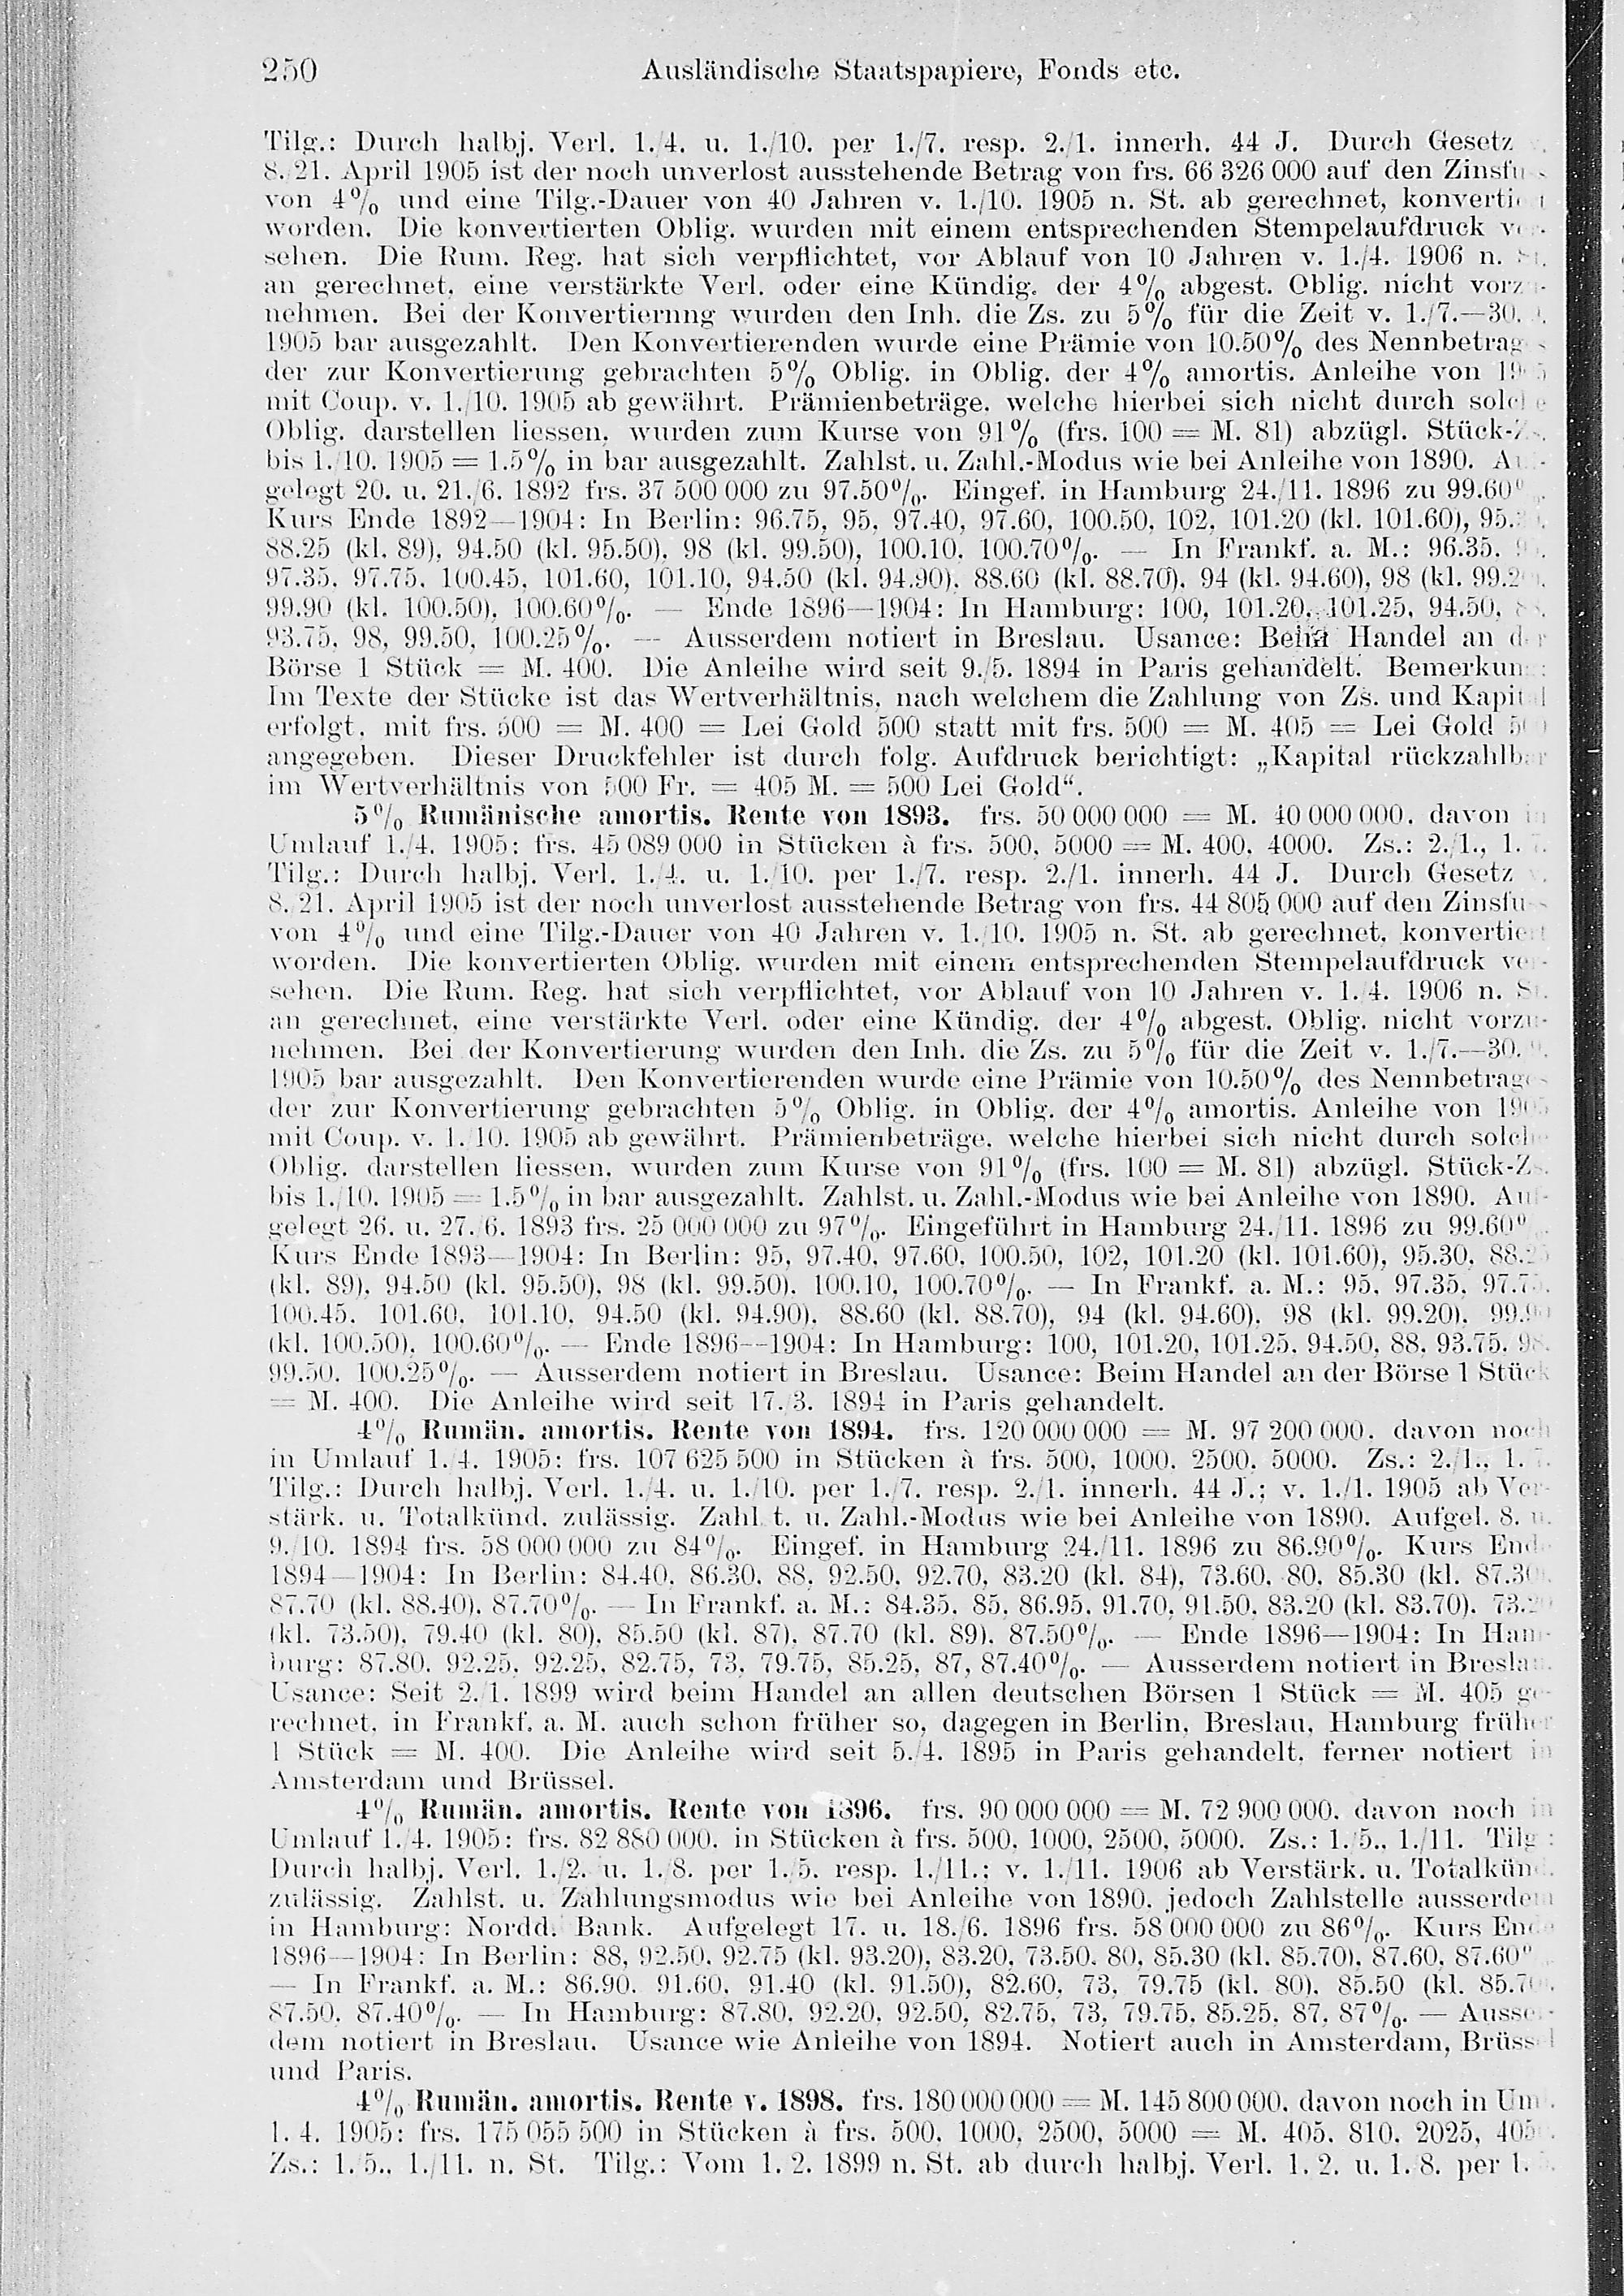 250 Ausländische Staatspapiere, Fonds etc.
Tilg.: Durch halbj. Verl. 1./4. u. 1./10. per 1./7. resp. 2./1. innerh. 44 J. Durch Gesetz
8./21. April 1905 ist der noch unverlost ausstehende Betrag von frs. 66 326 000 auf den Zinsfu
von 4% und eine Tilg.-Dauer von 40 Jahren v. 1./10. 1905 n. St. ab gerechnet, konverti
worden. Die konvertierten Oblig. wurden mit einem entsprechenden Stempelaufdruck ve-
sehen. Die Rum. Reg. hat sich verpflichtet, vor Ablauf von 10 Jahren v. 1./4. 1906 n. St.
an gerechnet, eine verstärkte Verl. oder eine Kündig. der 4% abgest. Oblig. nicht vorz-
nehmen. Bei der Konvertierung wurden den Inh. die Zs. zu 5% für die Zeit v. 1./7.—30.
1905 bar ausgezahlt. Den Konvertierenden wurde eine Prämie von 10.50% des Nennbetrag
der zur Konvertierung gebrachten 5% Oblig. in Oblig. der 4% amortis. Anleihe von 1905
mit Coup. v. 1./10. 1905 ab gewährt. Prämienbeträge, welche hierbei sich nicht durch solche
Oblig. darstellen liessen, wurden zum Kurse von 91% (frs. 100 = M. 81) abzügl. Stück-Zs.
bis 1./10. 1905 = 1.5% in bar ausgezahlt. Zahlst. u. Zahl.-Modus wie bei Anleihe von 1890. Au-
gelegt 20. u. 21./6. 1892 frs. 37 500 000 zu 97.50%. Eingef. in Hamburg 24./11. 1896 zu 99.60%
Kurs Ende 1892—1904: In Berlin: 96.75, 95, 97.40, 97.60, 100.50, 102, 101.20 (kl. 101.60), 95.
88.25 (kl. 89), 94.50 (kl. 95.50), 98 (kl. 99.50), 100.10, 100.70%. — In Frankf. a. M.: 96.35,
97.35, 97.75, 100.45, 101.60, 101.10, 94.50 (kl. 94.90), 88.60 (kl. 88.70), 94 (kl. 94.60), 98 (kl. 99.20),
99.90 (kl. 100.50), 100.60%. — Ende 1896—1904: In Hamburg: 100, 101.20, 101.25, 94.50,
93.75, 98, 99.50, 100.25%. — Ausserdem notiert in Breslau. Usance: Beim Handel an der
Börse 1 Stück = M. 400. Die Anleihe wird seit 9./5. 1894 in Paris gehandelt. Bemerkun:
Im Texte der Stücke ist das Wertverhältnis, nach welchem die Zahlung von Zs. und Kapital
erfolgt, mit frs. 500 = M. 400 = Lei Gold 500 statt mit frs. 500 = M. 405 = Lei Gold 500
angegeben. Dieser Druckfehler ist durch folg. Aufdruck berichtigt: „Kapital rückzahlbar
im Wertverhältnis von 500 Fr. = 405 M. = 500 Lei Gold“.
5% Rumänische amortis. Rente von 1893. frs. 50 000 000 = M. 40 000 000, davon in
Umlauf 1./4. 1905: frs. 45 089 000 in Stücken à frs. 500, 5000 = M. 400, 4000. Zs.: 2./1., 1./7.
Tilg.: Durch halbj. Verl. 1./4. u. 1./10. per 1./7. resp. 2./1. innerh. 44 J. Durch Gesetz v.
8./21. April 1905 ist der noch unverlost ausstehende Betrag von frs. 44 805 000 auf den Zinsfu
von 4% und eine Tilg.-Dauer von 40 Jahren v. 1./10. 1905 n. St. ab gerechnet, konvertiert
worden. Die konvertierten Oblig. wurden mit einem entsprechenden Stempelaufdruck ver-
sehen. Die Rum. Reg. hat sich verpflichtet, vor Ablauf von 10 Jahren v. 1./4. 1906 n. St.
an gerechnet, eine verstärkte Verl. oder eine Kündig. der 4% abgest. Oblig. nicht vorzu-
nehmen. Bei der Konvertierung wurden den Inh. die Zs. zu 5% für die Zeit v. 1./7.—30./9.
1905 bar ausgezahlt. Den Konvertierenden wurde eine Prämie von 10.50% des Nennbetrages
der zur Konvertierung gebrachten 5% Oblig. in Oblig. der 4% amortis. Anleihe von 1905
mit Coup. v. 1./10. 1905 ab gewährt. Prämienbeträge, welche hierbei sich nicht durch solche
Oblig. darstellen liessen, wurden zum Kurse von 91% (frs. 100 = M. 81) abzügl. Stück-Zs.
bis 1./10. 1905 = 1.5% in bar ausgezahlt. Zahlst. u. Zahl.-Modus wie bei Anleihe von 1890. Auf-
gelegt 26. u. 27./6. 1893 frs. 25 000 000 zu 97%. Eingeführt in Hamburg 24./11. 1896 zu 99.60%
Kurs Ende 1893—1904: In Berlin: 95, 97.40, 97.60, 100.50, 102, 101.20 (kl. 101.60), 95.30, 88.25
(kl. 89), 94.50 (kl. 95.50), 98 (kl. 99.50), 100.10, 100.70%. — In Frankf. a. M.: 95, 97.35, 97.75,
100.45, 101.60, 101.10, 94.50 (kl. 94.90), 88.60 (kl. 88.70), 94 (kl. 94.60), 98 (kl. 99.20), 99.90
(kl. 100.50), 100.60%. — Ende 1896—1904: In Hamburg: 100, 101.20, 101.25, 94.50, 88, 93.75, 98,
99.50, 100.25%. — Ausserdem notiert in Breslau. Usance: Beim Handel an der Börse 1 Stück
= M. 400. Die Anleihe wird seit 17./3. 1894 in Paris gehandelt.
4% Rumän. amortis. Rente von 1894. frs. 120 000 000 = M. 97 200 000, davon noch
in Umlauf 1./4. 1905: frs. 107 625 500 in Stücken à frs. 500, 1000, 2500, 5000. Zs.: 2./1., 1./7.
Tilg.: Durch halbj. Verl. 1./4. u. 1./10. per 1./7. resp. 2./1. innerh. 44 J.; v. 1./1. 1905 ab Ver-
stärk. u. Totalkünd. zulässig. Zahl t. u. Zahl.-Modus wie bei Anleihe von 1890. Aufgel. 8. u.
9./10. 1894 frs. 58 000 000 zu 84%. Eingef. in Hamburg 24./11. 1896 zu 86.90%. Kurs Ende
1894—1904: In Berlin: 84.40, 86.30, 88, 92.50, 92.70, 83.20 (kl. 84), 73.60, 80, 85.30 (kl. 87.30),
87.70 (kl. 88.40), 87.70%. — In Frankf. a. M.: 84.35, 85, 86.95, 91.70, 91.50, 83.20 (kl. 83.70), 73.20
(kl. 73.50), 79.40 (kl. 80), 85.50 (kl. 87), 87.70 (kl. 89), 87.50%. — Ende 1896—1904: In Ham-
burg: 87.80, 92.25, 92.25, 82.75, 73, 79.75, 85.25, 87, 87.40%. — Ausserdem notiert in Breslau.
Usance: Seit 2./1. 1899 wird beim Handel an allen deutschen Börsen 1 Stück = M. 405 ge-
rechnet, in Frankf. a. M. auch schon früher so, dagegen in Berlin, Breslau, Hamburg früher
1 Stück = M. 400. Die Anleihe wird seit 5./4. 1895 in Paris gehandelt, ferner notiert in
Amsterdam und Brüssel.
4% Rumän. amortis. Rente von 1896. frs. 90 000 000 = M. 72 900 000, davon noch in
Umlauf 1./4. 1905: frs. 82 880 000, in Stücken à frs. 500, 1000, 2500, 5000. Zs.: 1./5., 1./11. Tilg.:
Durch halbj. Verl. 1./2. u. 1./8. per 1./5. resp. 1./11.; v. 1./11. 1906 ab Verstärk. u. Totalkünd.
zulässig. Zahlst. u. Zahlungsmodus wie bei Anleihe von 1890, jedoch Zahlstelle ausserdem
in Hamburg: Nordd. Bank. Aufgelegt 17. u. 18./6. 1896 frs. 58 000 000 zu 86%. Kurs Ende
1896—1904: In Berlin: 88, 92.50, 92.75 (kl. 93.20), 83.20, 73.50, 80, 85.30 (kl. 85.70), 87.60, 87.60%
— In Frankf. a. M.: 86.90, 91.60, 91.40 (kl. 91.50), 82.60, 73, 79.75 (kl. 80), 85.50 (kl. 85.70),
87.50, 87.40%. — In Hamburg: 87.80, 92.20, 92.50, 82.75, 73, 79.75, 85.25, 87, 87%. — Ausser-
dem notiert in Breslau. Usance wie Anleihe von 1894. Notiert auch in Amsterdam, Brüssel
und Paris.
4% Rumän. amortis. Rente v. 1898. frs. 180 000 000 = M. 145 800 000, davon noch in Um
1. 4. 1905: frs. 175 055 500 in Stücken à frs. 500, 1000, 2500, 5000 = M. 405, 810, 2025, 4050.
Zs.: 1./5., 1./11. n. St. Tilg.: Vom 1. 2. 1899 n. St. ab durch halbj. Verl. 1. 2. u. 1. 8. per 1.